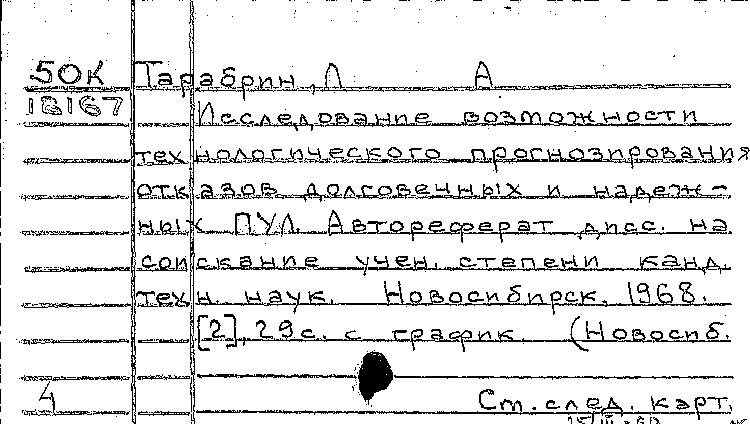 50К Тарабрин, Л А
18167 Исследование возможности
технологического прогнозирования
отказов долговечных и надеж-
ных ПУЛ. Автореферат дисс. на
соискание учен. степени канд.
техн. наук. Новосибирск, 1968.
[2], 29 с. с график. (Новосиб.
4 Ст. след. карт.